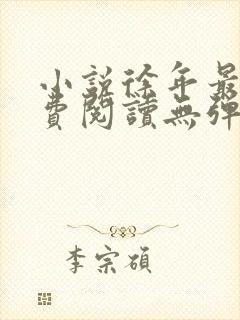 小說徐年最
費閱讀無彈
李宗碩